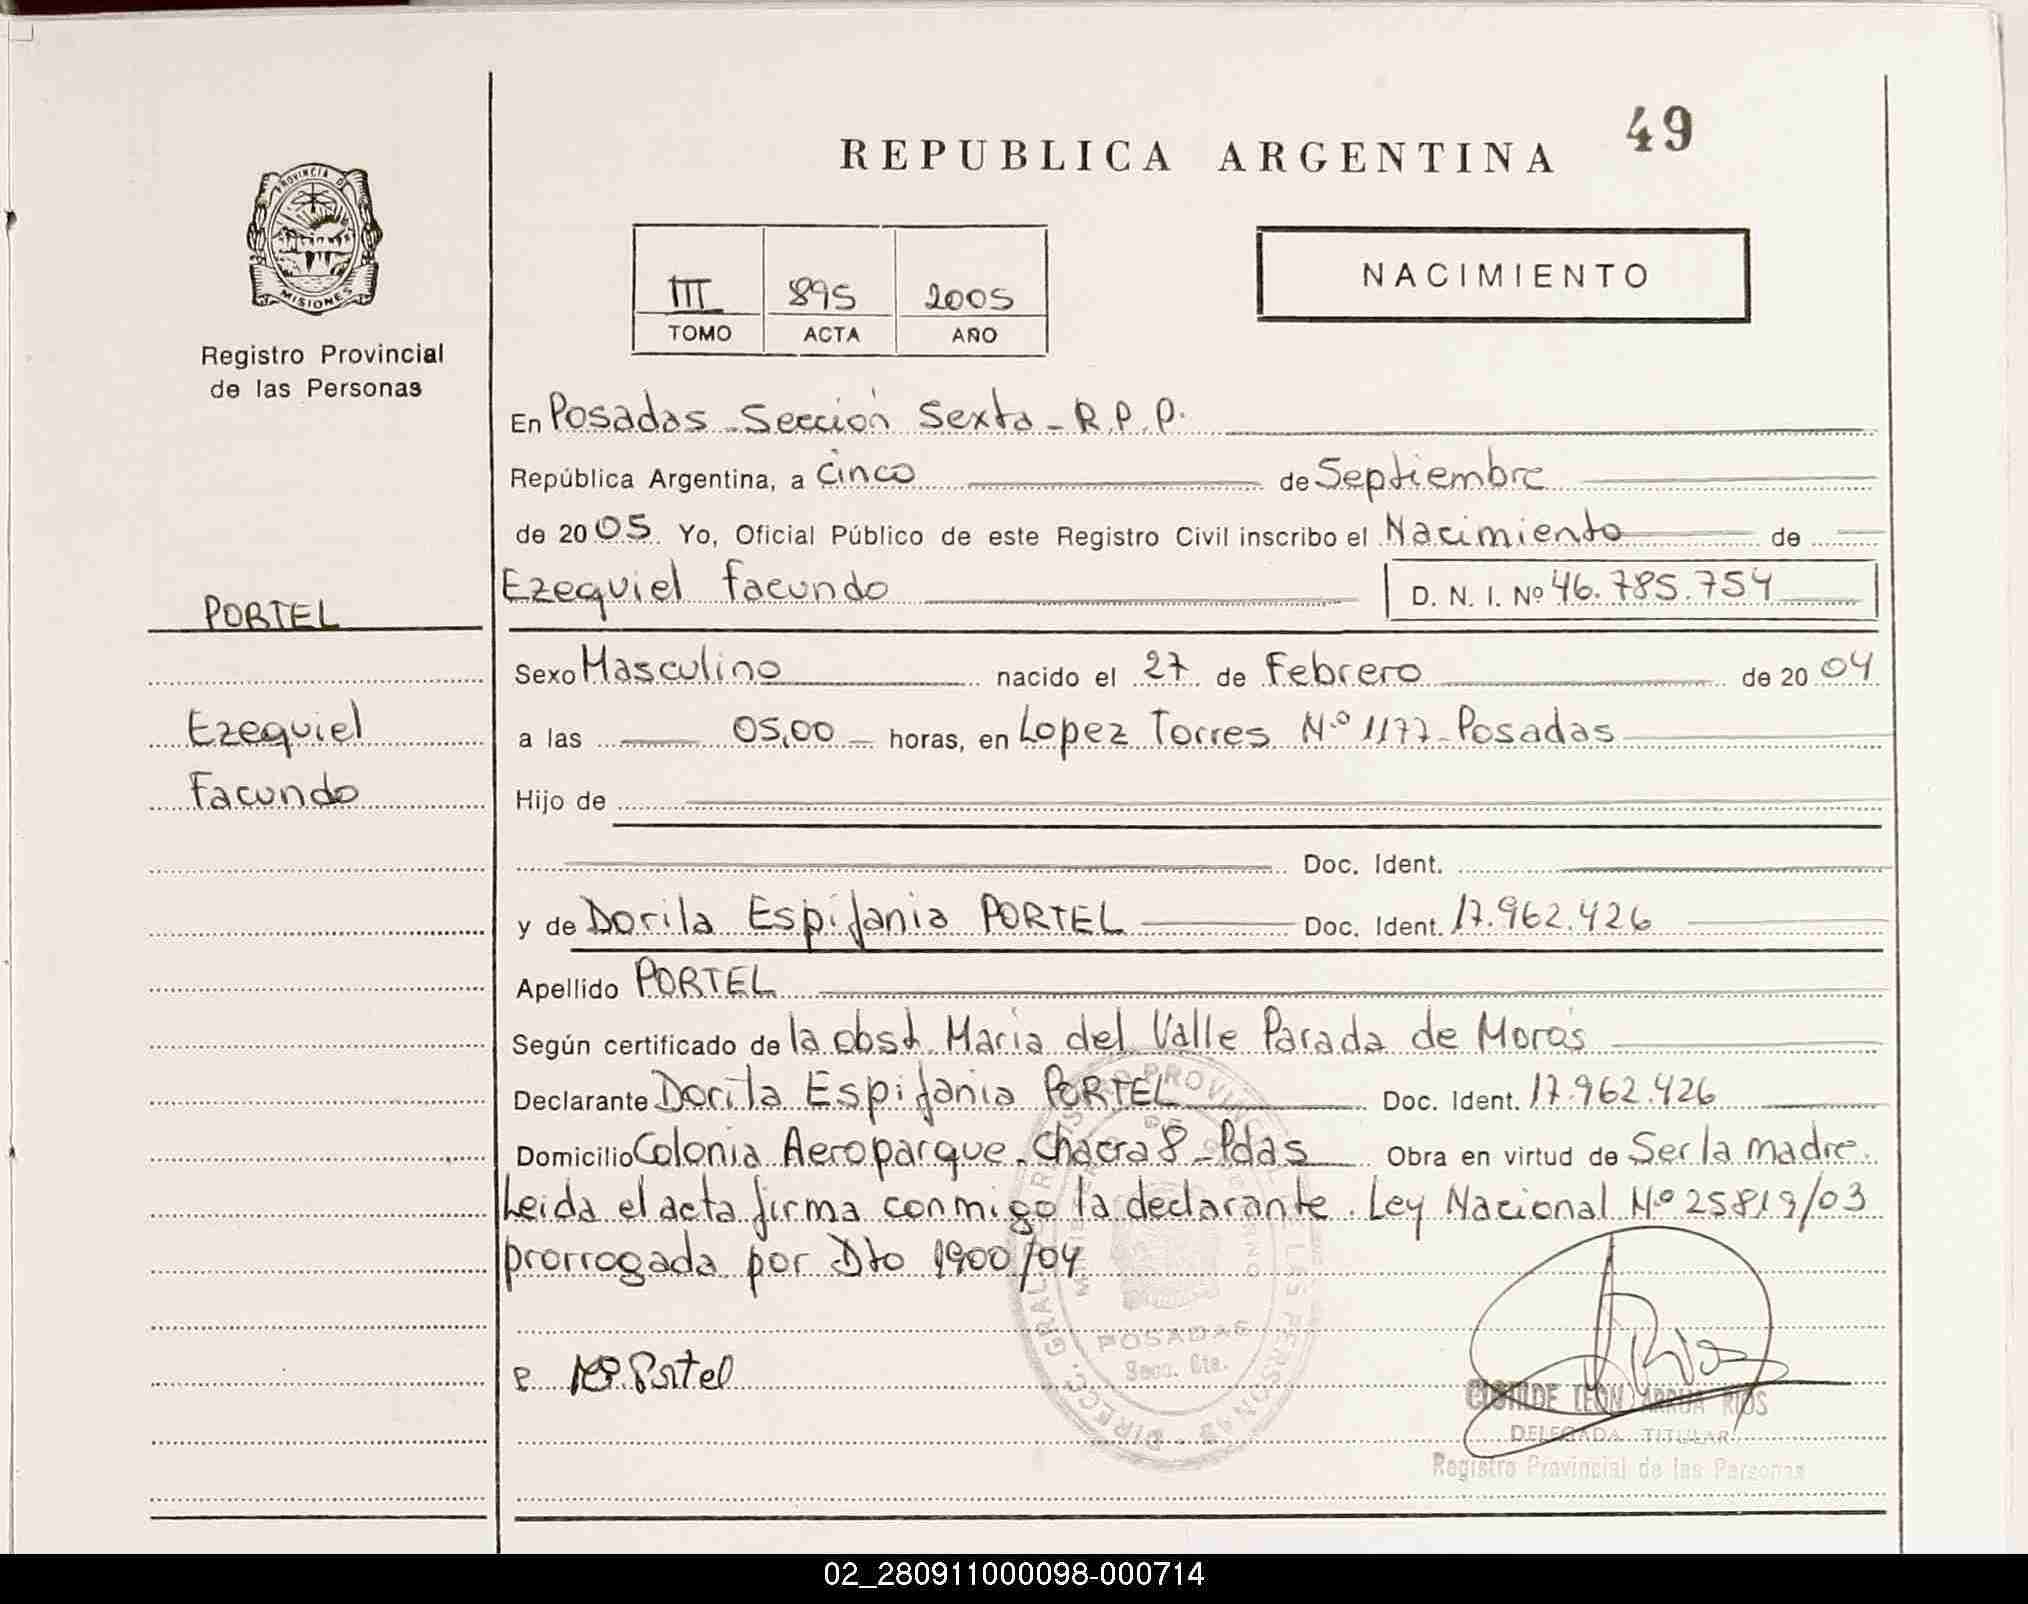 49
REPUBLICA ARGENTINA
PROVINCIA DE
MISIONES
Registro Provincial
de las Personas
NACIMIENTO
III 895 2005
TOMO ACTA AÑO
En Posadas - Sección Sexta - R.P.P.
República Argentina, a Cinco de Septiembre
de 2005. Yo, Oficial Público de este Registro Civil inscribo el Nacimiento de
Ezequiel Facundo D. N. I. Nº 46.785.754
PORTEL
Sexo Masculino nacido el 27 de Febrero de 2004
Ezequiel
a las 05,00 horas, en Lopez Torres Nº 1177 - Posadas
Facundo
Hijo de
Doc. Ident.
y de Dorila Espifania PORTEL Doc. Ident. 17.962.426
Apellido PORTEL
Según certificado de la obst. Maria del Valle Parada de Moras
Declarante Dorila Espifania PORTEL Doc. Ident. 17.962.426
Domicilio Colonia Aeroparque - Chacra 8 - Pdas Obra en virtud de Ser la madre.
Leida el acta firma conmigo la declarante. Ley Nacional Nº 25819/03
prorrogada por Dto 1900/04
POSADAS
Secc. 6ta.
Portel
CLOTILDE LEON ARRUA RIOS
DELEGADA TITULAR
Registro Provincial de las Personas
02_280911000098-000714